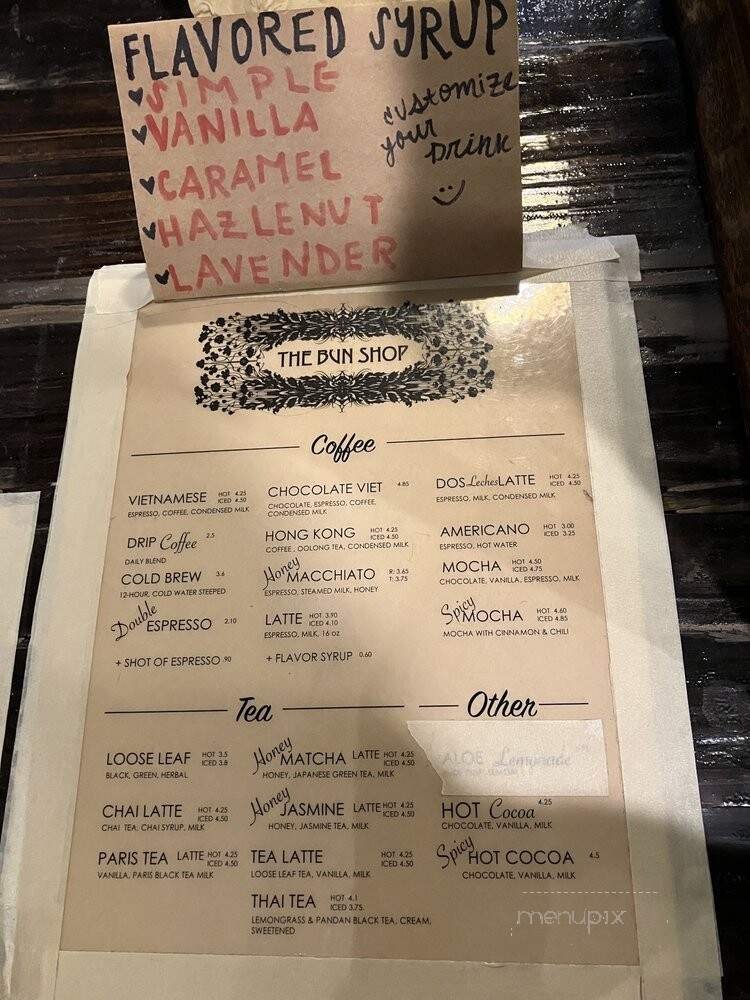 FLAVORED SYRUP
SIMPLE
VANILLA
CARAMEL
HAZLENUT
LAVENDER
customize
your
Drink
THE BUN SHOP
Coffee
VIETNAMESE HOT 4.25 ICED 4.50
ESPRESSO, COFFEE, CONDENSED MILK
DRIP Coffee 2.5
DAILY BLEND
COLD BREW 3.6
12-HOUR, COLD WATER STEEPED
Double ESPRESSO 2.10
+ SHOT OF ESPRESSO .90
CHOCOLATE VIET 4.85
CHOCOLATE, ESPRESSO, COFFEE,
CONDENSED MILK
HONG KONG HOT 4.25 ICED 4.50
COFFEE , OOLONG TEA, CONDENSED MILK
Honey MACCHIATO R: 3.65 T: 3.75
ESPRESSO, STEAMED MILK, HONEY
LATTE HOT 3.90 ICED 4.10
ESPRESSO, MILK, 16 oz
+ FLAVOR SYRUP 0.60
DOS Leches LATTE HOT 4.25 ICED 4.50
ESPRESSO, MILK, CONDENSED MILK
AMERICANO HOT 3.00 ICED 3.25
ESPRESSO, HOT WATER
MOCHA HOT 4.50 ICED 4.75
CHOCOLATE, VANILLA, ESPRESSO, MILK
Spicy MOCHA HOT 4.60 ICED 4.85
MOCHA WITH CINNAMON & CHILI
Tea
LOOSE LEAF HOT 3.5 ICED 3.8
BLACK, GREEN, HERBAL
CHAI LATTE HOT 4.25 ICED 4.50
CHAI TEA, CHAI SYRUP, MILK
PARIS TEA LATTE HOT 4.25 ICED 4.50
VANILLA, PARIS BLACK TEA MILK
Honey MATCHA LATTE HOT 4.25 ICED 4.50
HONEY, JAPANESE GREEN TEA, MILK
Honey JASMINE LATTE HOT 4.25 ICED 4.50
HONEY, JASMINE TEA, MILK
TEA LATTE HOT 4.25 ICED 4.50
LOOSE LEAF TEA, VANILLA, MILK
THAI TEA HOT 4.1 ICED 3.75.
LEMONGRASS & PANDAN BLACK TEA, CREAM,
SWEETENED
Other
ALOE Lemonade
HOT Cocoa 4.25
CHOCOLATE, VANILLA, MILK
Spicy HOT COCOA 4.5
CHOCOLATE, VANILLA, MILK
menupix